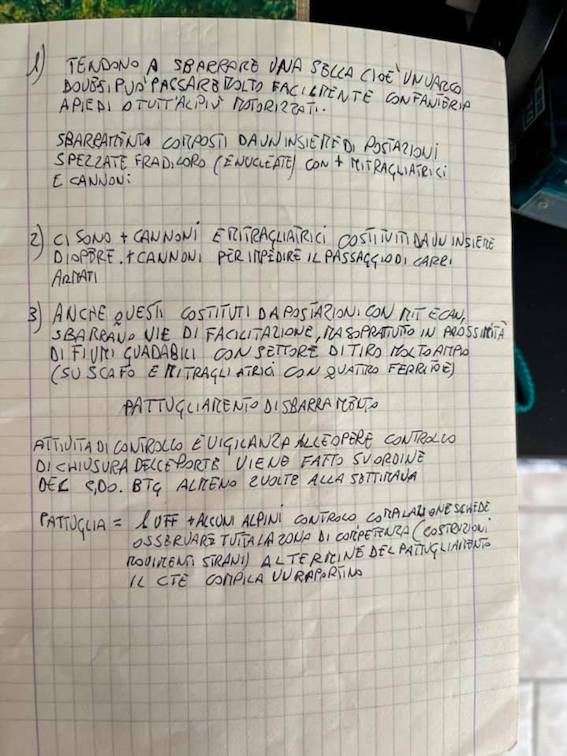 1) TENDONO A SBARRARE UNA SELLA CIOÈ UN VARCO
DOVE SI PUÒ PASSARE MOLTO FACILMENTE CON FANTERIA
A PIEDI O TUTT'ALPIÙ MOTORIZZATI.
SBARRAMENTO COMPOSTI DA UN INSIEME DI POSTAZIONI
SPEZZATE FRA DI LORO (ENUCLEATE) CON + MITRAGLIATRICI
E CANNONI
2) CI SONO + CANNONI E MITRAGLIATRICI COSTITUITI DA UN INSIEME
DI OPERE. + CANNONI PER IMPEDIRE IL PASSAGGIO DI CARRI
ARMATI
3) ANCHE QUESTI COSTITUTI DA POSTAZIONI CON MIT E CAN.
SBARRANO VIE DI FACILITAZIONE, MA SOPRATUTTO IN PROSSIMITÀ
DI FIUMI GUADABILI CON SETTORE DI TIRO MOLTO AMPIO
(SU SCAFO E MITRAGLIATRICI CON QUATTRO FERITOIE)
PATTUGLIAMENTO DI SBARRAMENTO
ATTIVITA DI CONTROLLO E VIGILANZA ALLE OPERE CONTROLLO
DI CHIUSURA DELLE PORTE VIENE FATTO SU ORDINE
DEL BTG ALMENO 2 VOLTE ALLA SETTIMANA
PATTUGLIA = 1 UFF + ALCUNI ALPINI CONTROLO SCHEDE
OSSERVARE TUTTA LA ZONA DI COMPETENZA (COSTRUZIONI
MOVIMENTI STRANI) AL TERMINE DEL PATTUGLIAMENTO
IL CTE COMPILA UN RAPORTINO